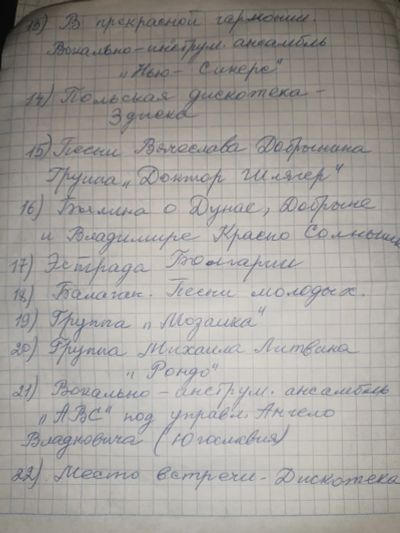 13) В прекрасной гармонии.
Вокально-инструм. ансамбль
„Нью-Сингерс“
14) Польская дискотека -
3 диска
15) Песни Вячеслава Добрынина
Группа „Доктор Шлягер“
16) Былина о Дунае, Добрыне
и Владимире Красно Солнышк
17) Эстрада Болгарии
18) Балаган. Песни молодых.
19) Группа „Мозаика“
20) Группа Михаила Литвина
„Рондо“
21) Вокально-инструм. ансамбль
„АВС“ под управл. Ангело
Владковича (Югославия)
22) Место встречи - Дискотека